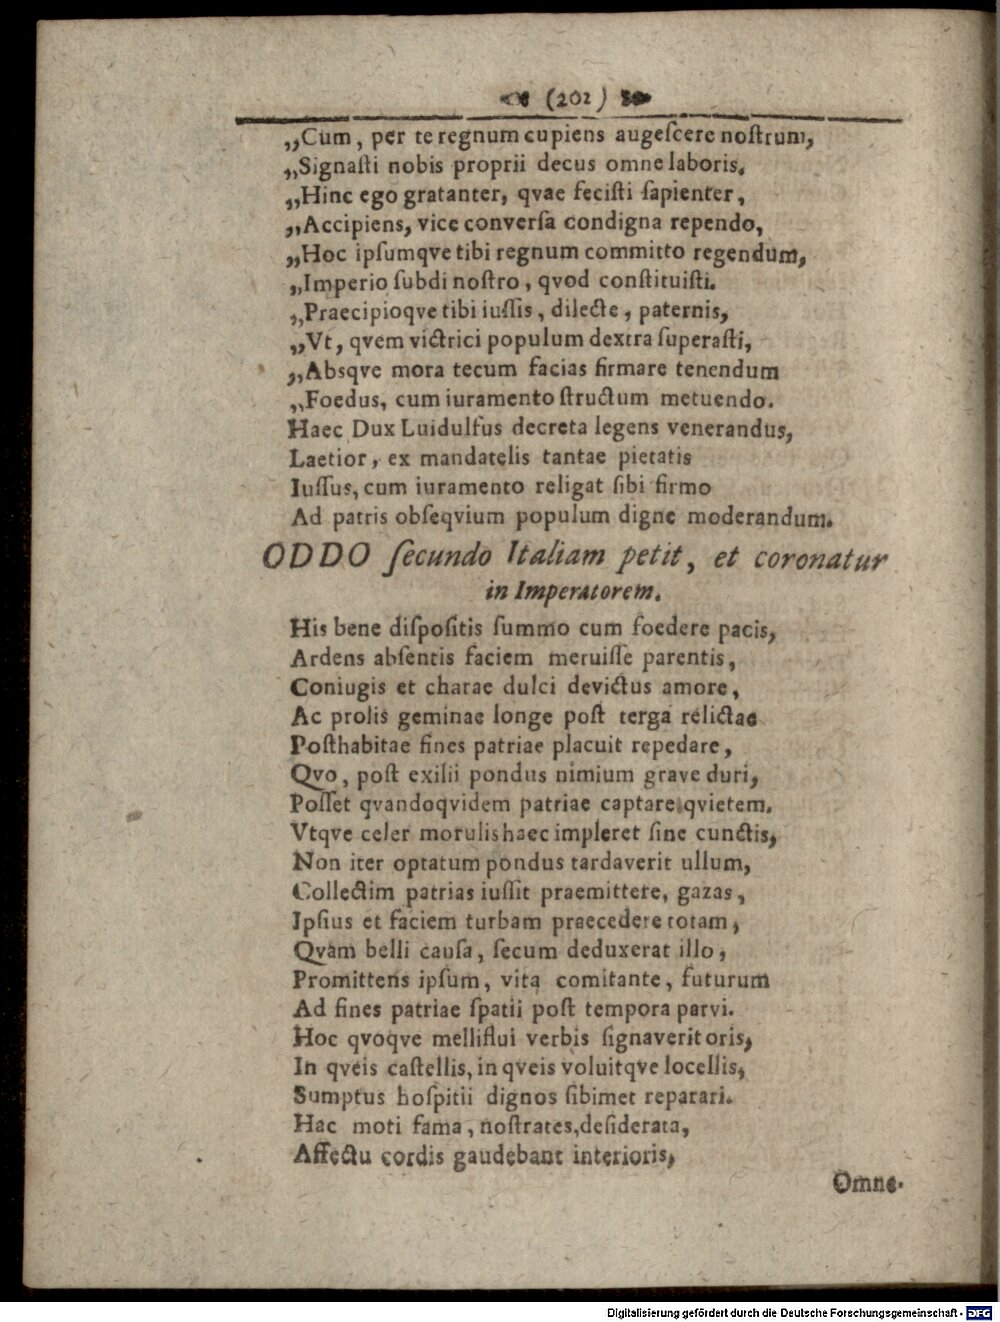 (202)
„Cum, per te regnum cupiens augeſcere noſtrum,
„Signaſti nobis proprii decus omne laboris.
„Hinc ego gratanter, qvae feciſti ſapienter,
„Accipiens, vice converſa condigna rependo,
„Hoc ipſumqve tibi regnum committo regendum,
„Imperio ſubdi noſtro, qvod conſtituiſti.
„Praecipioqve tibi iuſſis, dilecte, paternis,
„Vt, qvem victrici populum dextra ſuperaſti,
„Absqve mora tecum facias firmare tenendum
„Foedus, cum iuramento ſtructum metuendo.
Haec Dux Luidulfus decreta legens venerandus,
Laetior, ex mandatelis tantae pietatis
Iuſſus, cum iuramento religat ſibi firmo
Ad patris obſeqvium populum digne moderandum.
ODDO ſecundo Italiam petit, et coronatur
in Imperatorem.
His bene diſpoſitis ſummo cum foedere pacis,
Ardens abſentis faciem meruiſſe parentis,
Coniugis et charae dulci devictus amore,
Ac prolis geminae longe poſt terga relictae
Poſthabitae fines patriae placuit repedare,
Qvo, poſt exilii pondus nimium grave duri,
Poſſet qvandoqvidem patriae captare qvietem.
Vtqve celer morulis haec impleret ſine cunctis,
Non iter optatum pondus tardaverit ullum,
Collectim patrias iuſſit praemittere, gazas,
Ipſius et faciem turbam praecedere totam,
Qvam belli cauſa, ſecum deduxerat illo,
Promittens ipſum, vita comitante, futurum
Ad fines patriae ſpatii poſt tempora parvi.
Hoc qvoqve melliflui verbis ſignaverit oris,
In qveis caſtellis, in qveis voluitqve locellis,
Sumptus hoſpitii dignos ſibimet reparari.
Hac moti fama, noſtrates, deſiderata,
Affectu cordis gaudebant interioris,
Omne-
Digitalisierung gefördert durch die Deutsche Forschungsgemeinschaft - DFG